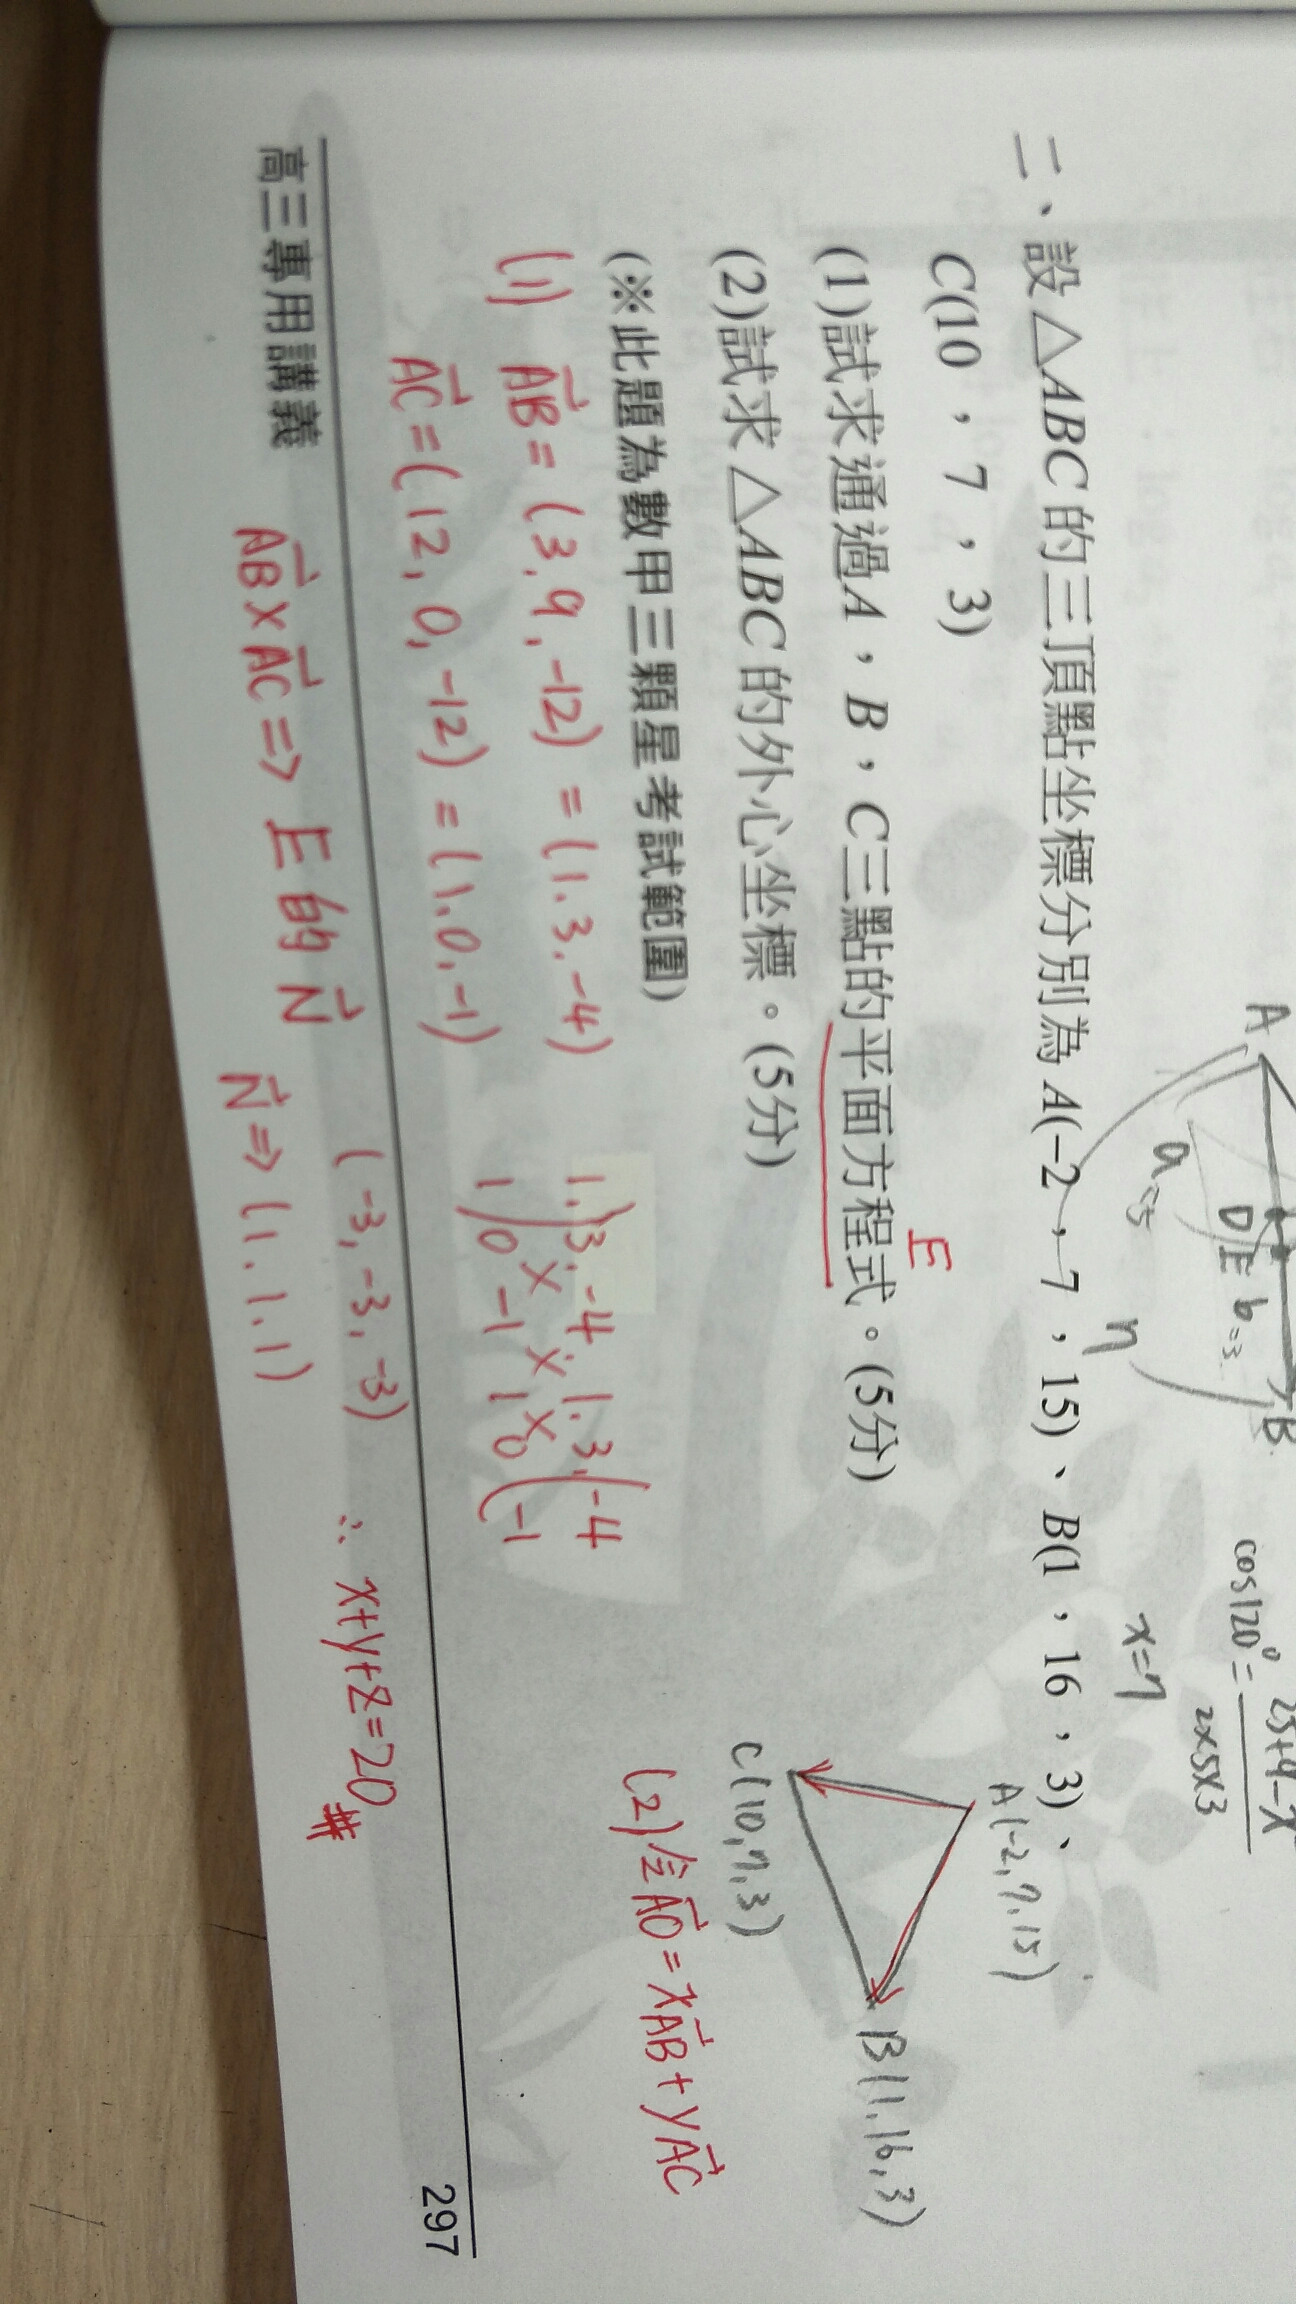 A
B
D
E
a=5
b=3
7
x=7
cos120°=
25+9-x
2x5x3
二、設△ABC的三頂點坐標分別為A(-2，7，15)、B(1，16，3)、
C(10，7，3)
(1)試求通過A，B，C三點的平面方程式。(5分)
E
(2)試求△ABC的外心坐標。(5分)
(※此題為數甲三顆星考試範圍)
A(-2,7,15)
B(1,16,3)
C(10,7,3)
(1) AB=(3,9,-12)=(1,3,-4)
AC=(12,0,-12)=(1,0,-1)
1,3,-4,1,3,-4
1 0 -1 1 0 -1
(2)令AO=xAB+yAC
(-3,-3,-3)
∴ x+y+z=20 #
高三專用講義
297
AB×AC⇒E的N
N⇒(1,1,1)